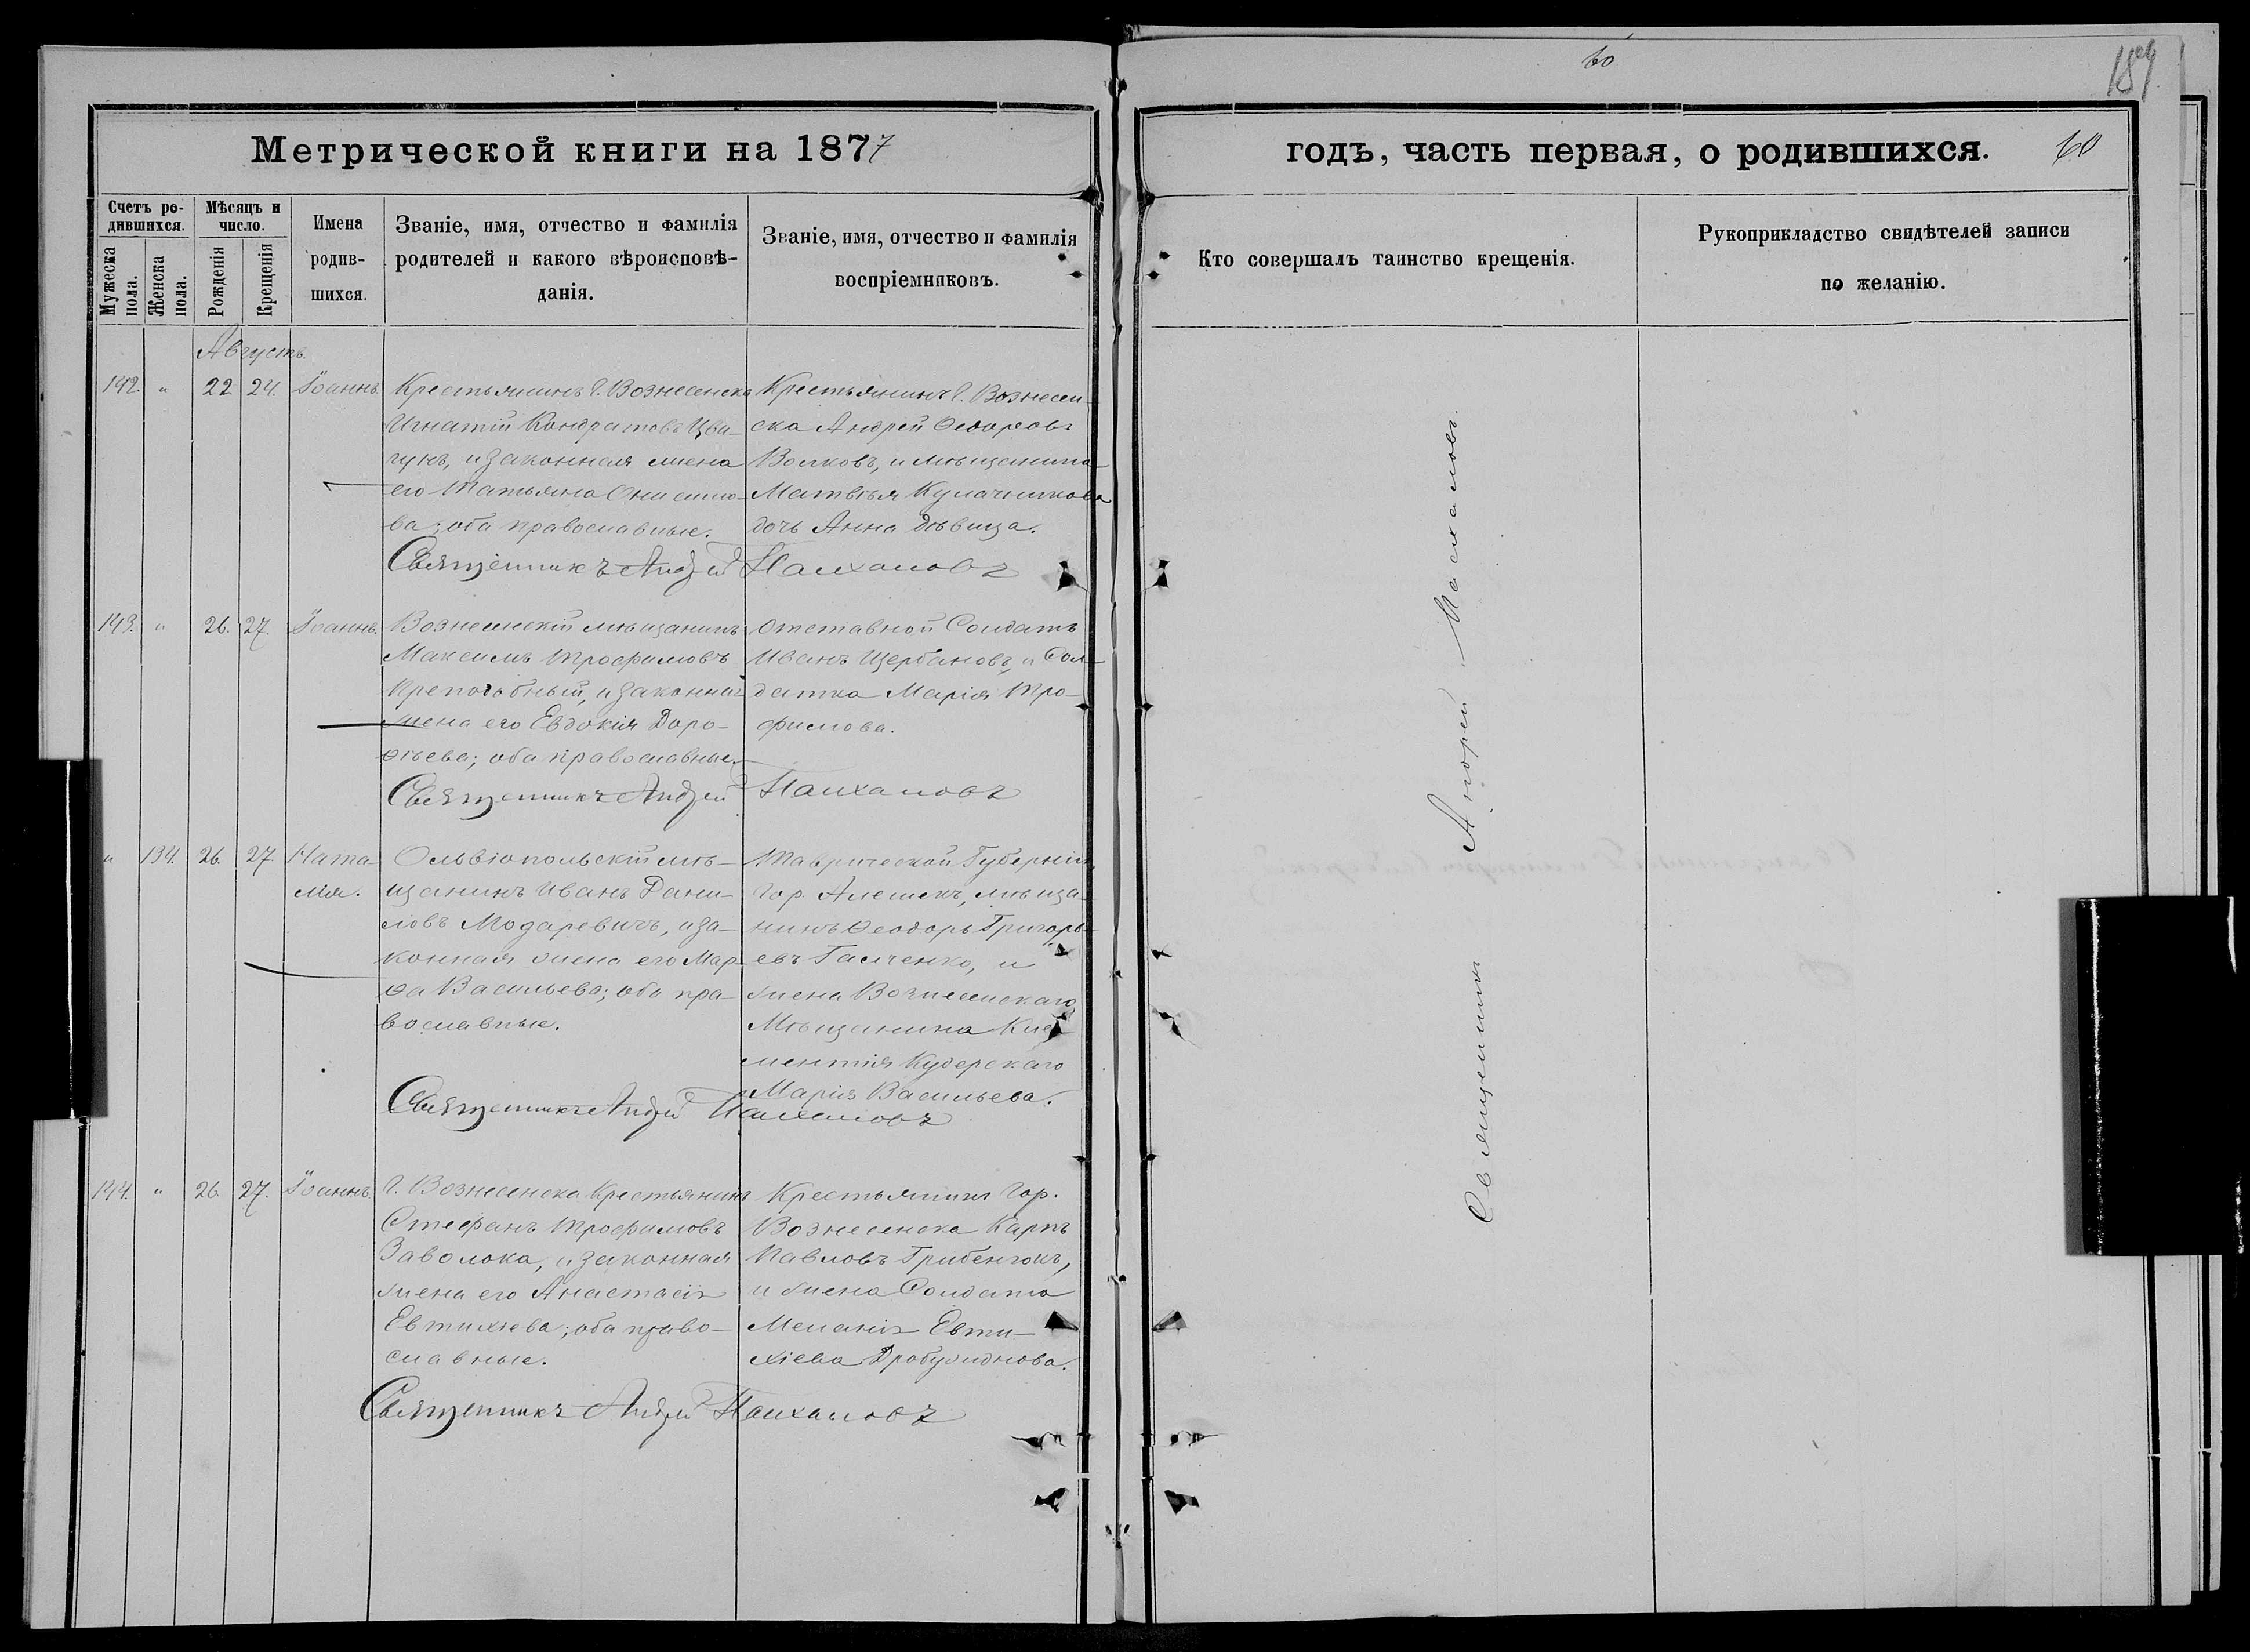 60
189
Метрической книги на 1877
годъ, часть первая, о родившихся. 60
Счетъ ро-
дившихся.
Мужеска
пола.
Женска
пола.
Мѣсяцъ и
число.
Рожденія
Крещенія
Имена
родив-
шихся.
Званіе, имя, отчество и фамилія
родителей и какого вѣроисповѣ-
данія.
Званіе, имя, отчество и фамилія
воспріемниковъ.
Кто совершалъ таинство крещенія.
Рукоприкладство свидѣтелей записи
по желанію.
Августъ.
142. " 22 24. Іоаннъ.
Крестьянинъ г. Вознесенска
Игнатій Кондратовъ
и законная жена
его Татьяна Онисимо-
ва; оба православные.
Крестьянинъ г. Вознесен-
ска Андрей Ѳеодоровъ
Волковъ, и мѣщанина
Матвѣя Кулачникова
дочь Анна дѣвица.
Священникъ Андрей
143. " 26. 27. Іоаннъ.
Вознесенскій мѣщанинъ
Максимъ Трофимовъ
и законная
жена его Евдокія Доро-
ѳѣева; оба православные.
Отставной Солдатъ
Иванъ Щербановъ, и Сол-
датка Марія Тро-
фимова.
Священникъ Андрей
" 134. 26. 27. Ната-
лія.
Ольвіопольскій мѣ-
щанинъ Иванъ Дани-
ловъ Модаревичъ, и за-
конная жена его Мар-
ѳа Васильева; оба пра-
вославные.
Таврической Губерніи
гор. Алешекъ, мѣща-
нинъ Ѳеодоръ Григорь-
евъ Галченко, и
жена Вознесенскаго
Мѣщанина Кли-
ментія Кудерскаго
Марія Васильева.
Священникъ Андрей
144. " 26. 27. Іоаннъ.
г. Вознесенска Крестьянинъ
Стефанъ Трофимовъ
Заволока, и законная
жена его Анастасія
Евтихіева; оба право-
славные.
Крестьянинъ гор.
Вознесенска Карпъ
Павловъ Грибенюкъ,
и жена Солдата
Меланія Евти-
хіева
Священникъ Андрей
Священникъ Андрей